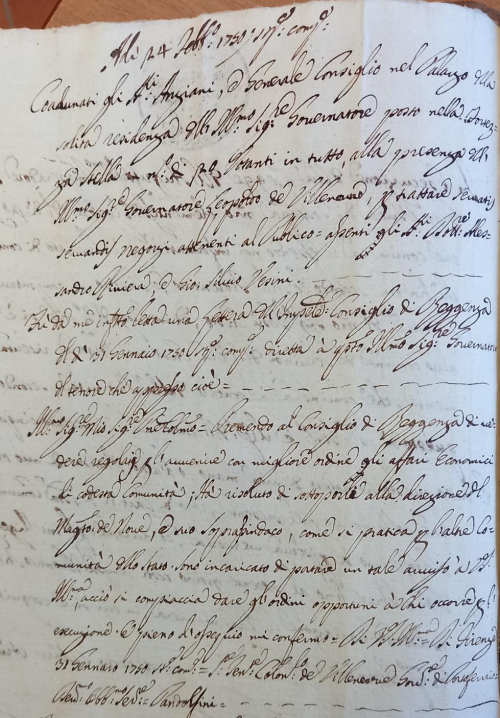 Adì 24 Febb.º 1750 St.º com.e
Coadunati gli SS.ri Anziani, e Generale Consiglio nel Palazzo della
solita residenza dell' Ill.mo Sig.re Governatore posto nella Fortez
za Stella in n.º di Votanti in tutto, alla presenza dell'
Ill.mo Sig.re Governatore Leopoldo de Villeneuve, p trattare
negozi attenenti al Publico = assenti gli SS.ri Dott.re Ales-
sandro Riviera, e Gio: Silvio Vesini.
Fù da me infrò letta una Lettera dell' Imperle: Consiglio di Reggenza
del dì 31 Gennaio 1750 St.º com.e diretta à Ill.mo Sig.re Governatore
del tenore che appresso cioè =
Ill.mo Sig.re Mio Sig.re Pne Colmo = Premendo al Consiglio di Reggenza di ve-
dere regolar p l'avvenire con migliore ordine gli affari Economici
di codesta Comunità; Hà risoluto di sottoporle alla direzione del
Magto: de Nove, e suo soprasindaco, come si pratica p l'altre Co-
munità dello Stato. Sono incaricato di passare un tale avviso à V.S.
Ill.ma, acciò si compiaccia dare gl'ordini opportuni à chi occorre p l'
esecuzione. E pieno d'ossequio mi confermo = Di V.S. Ill.ma = Di Firenze
31 Gennaro 1750 St.º com.e = Sr. Sen.e Colon.o de Villeneuve Gov.re di Portoferraio =
Dev.mo Obb.mo Serv.re = Pandolfini =